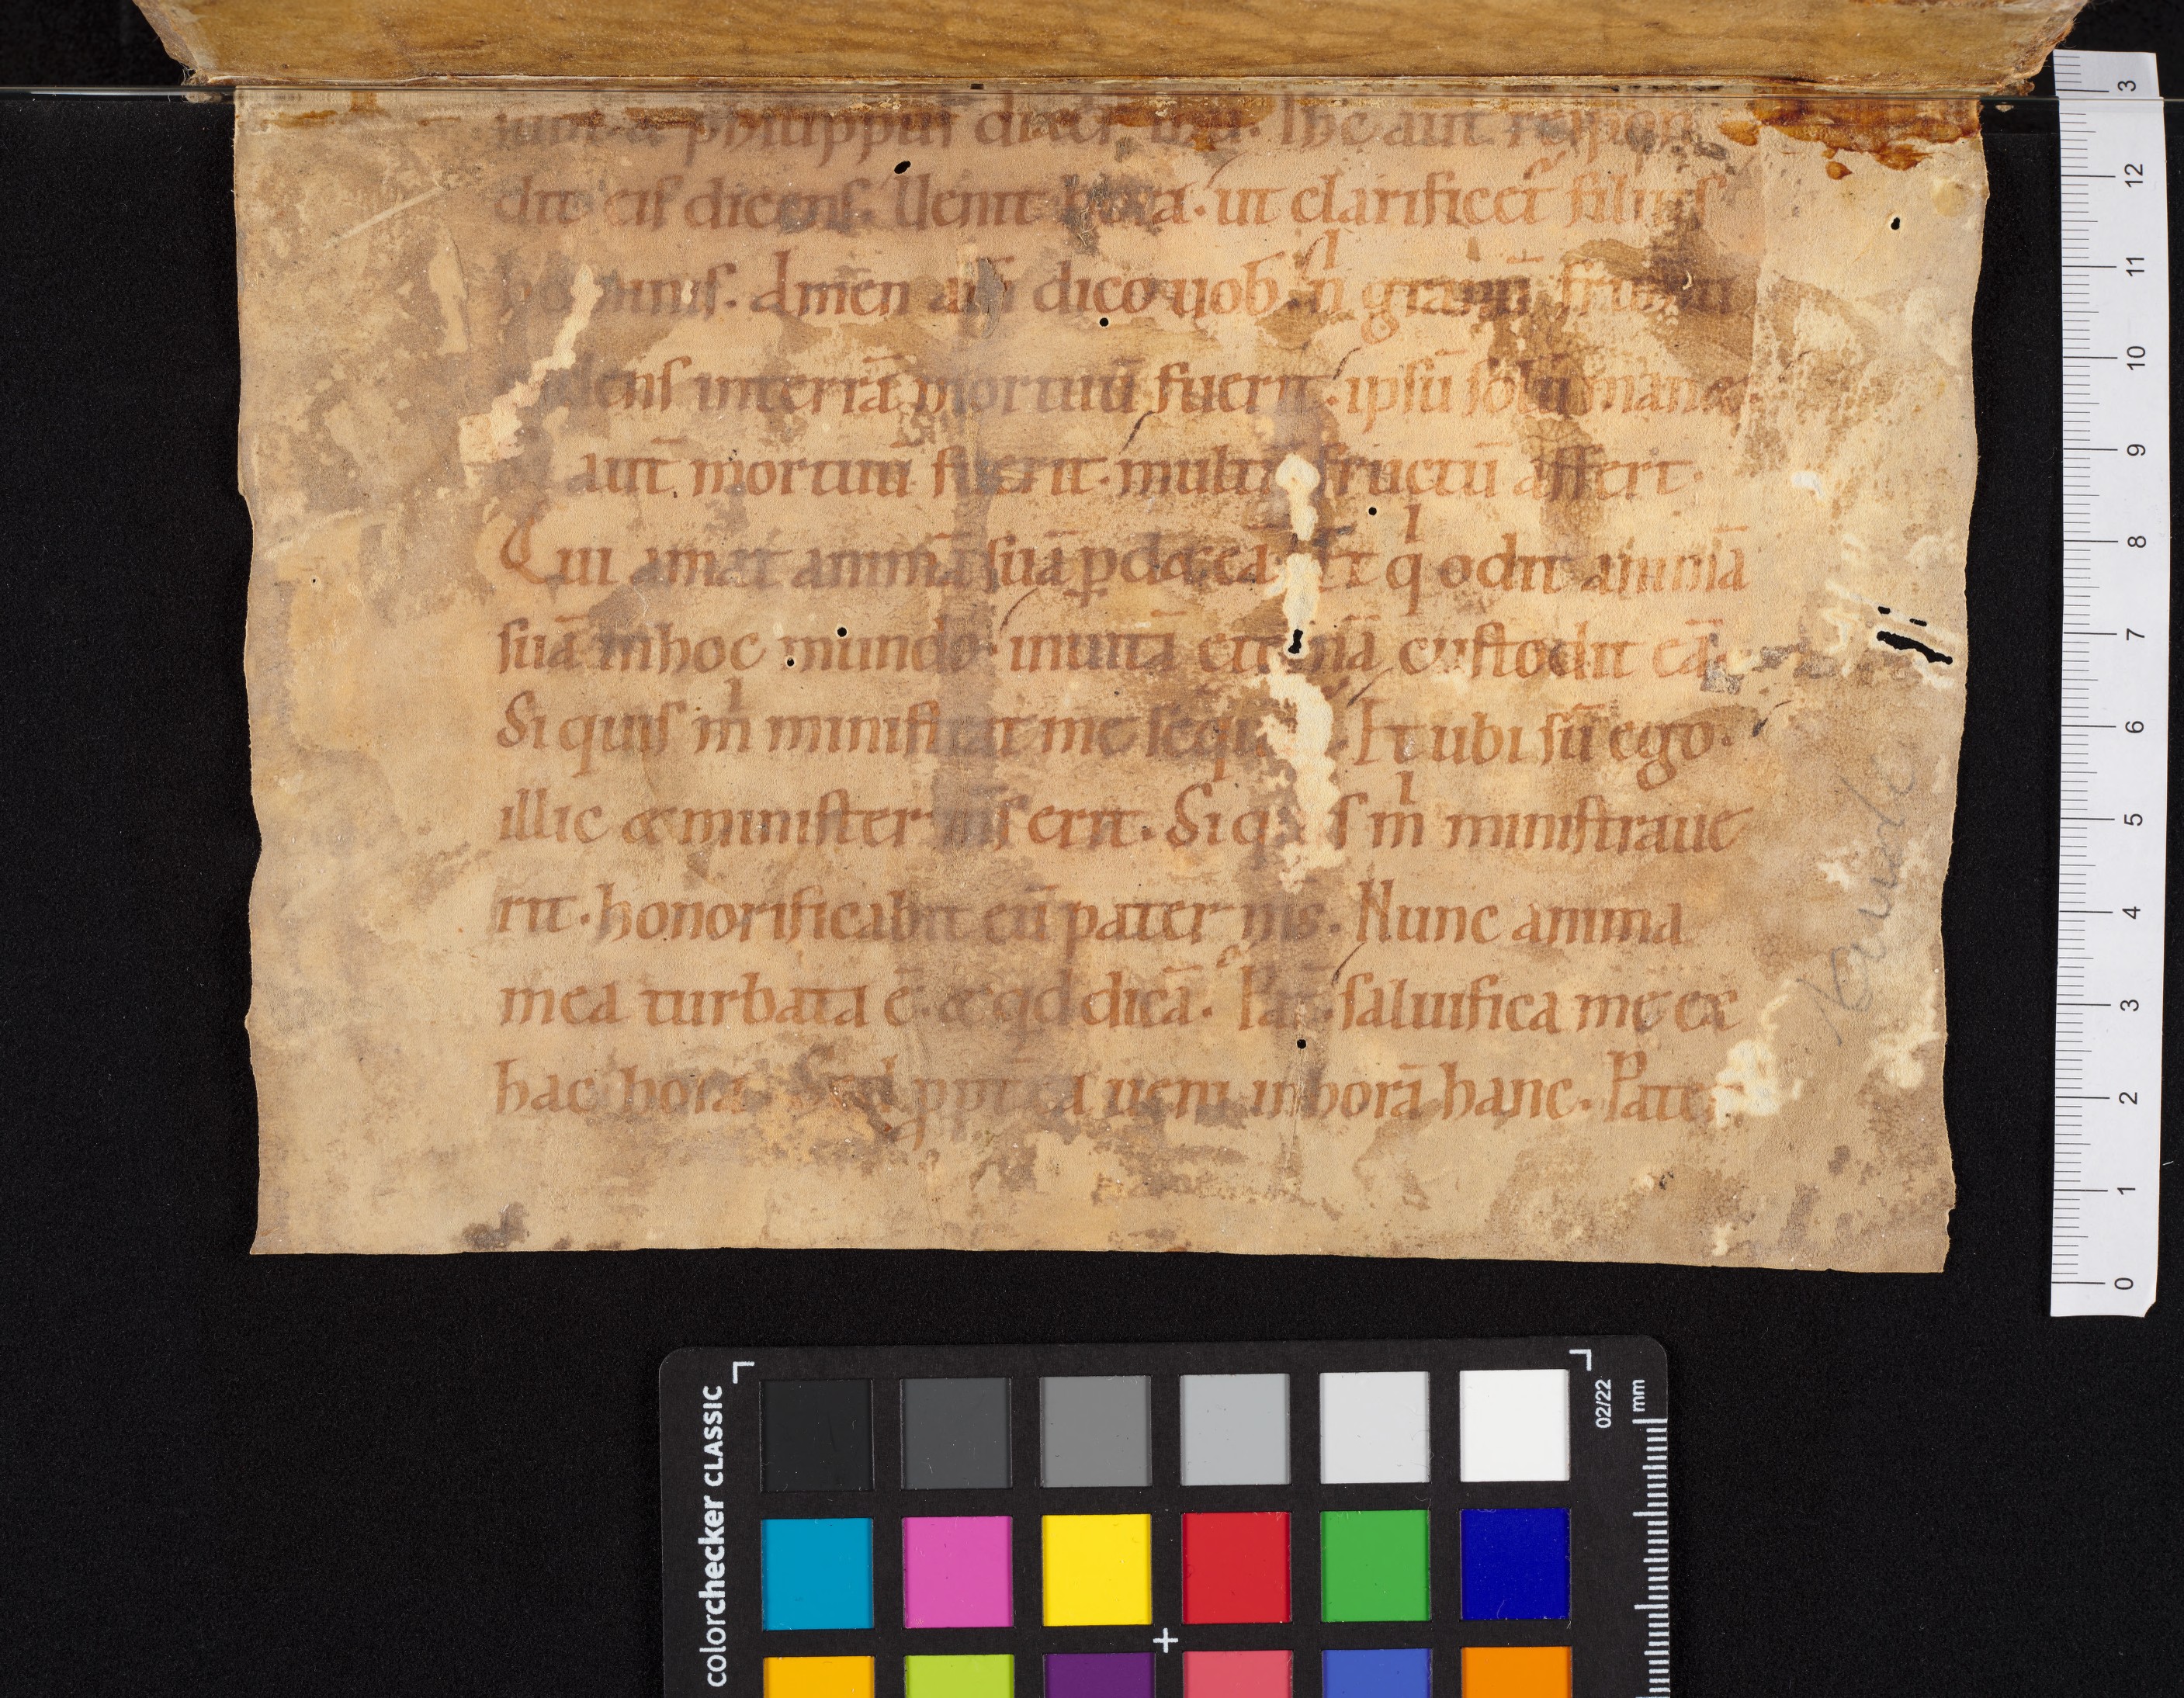 & philippus dix̄er̄ ihū. Ihc aut̄ respon
dit eis dicens. Uenit hora. ut clarificet̄ filius
hominis. Amen am̄ dico uob. n granū frum̄ti
cadens interrā mortuū fuerit. ipsū solū manet
aut̄ mortuū fuerit. multū fructū affert.
Qui amat animā suā ꝑdet eā. Et q odit animā
suā inhoc mundo. inuitā et̄nā custodit eā.
Si quis m ministrat me sequ . Et ubi sū ego.
illic & minister m̄s erit. Si quis m ministraue
rit. honorificabit eū pater m̄s. Nunc anima
mea turbata ē. & qd dicā. Pat̄. saluifica me ex
hac hora. Sed ppt̄ea ueni inhorā hanc. Pater
colorchecker CLASSIC
02/22
mm
0 1 2 3 4 5 6 7 8 9 10 11 12 3